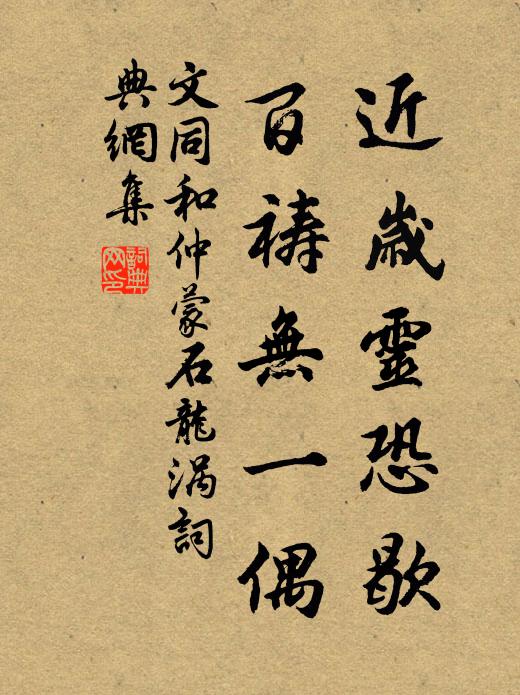 近歲靈恐歇
百禱無一偶
文同和仲蒙石龍涡詞
典網集
詞典网印